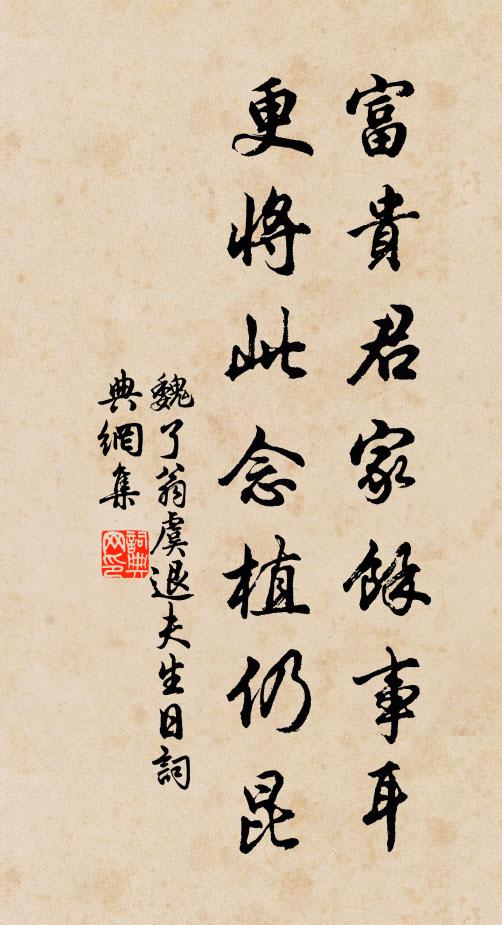 富貴君家餘事耳
更將此念植仍昆
魏了翁虞退夫生日詞
典網集
詞典
网印